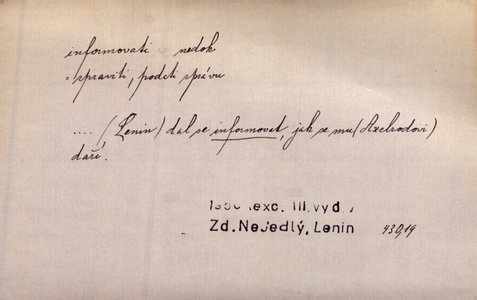 informovati nedok
= spraviti, podati správu
.... (Lenin) dal se informovat, jak se mu (Axelrodovi)
daří.
(exc. III. vyd.
Zd. Nejedlý, Lenin 430,19